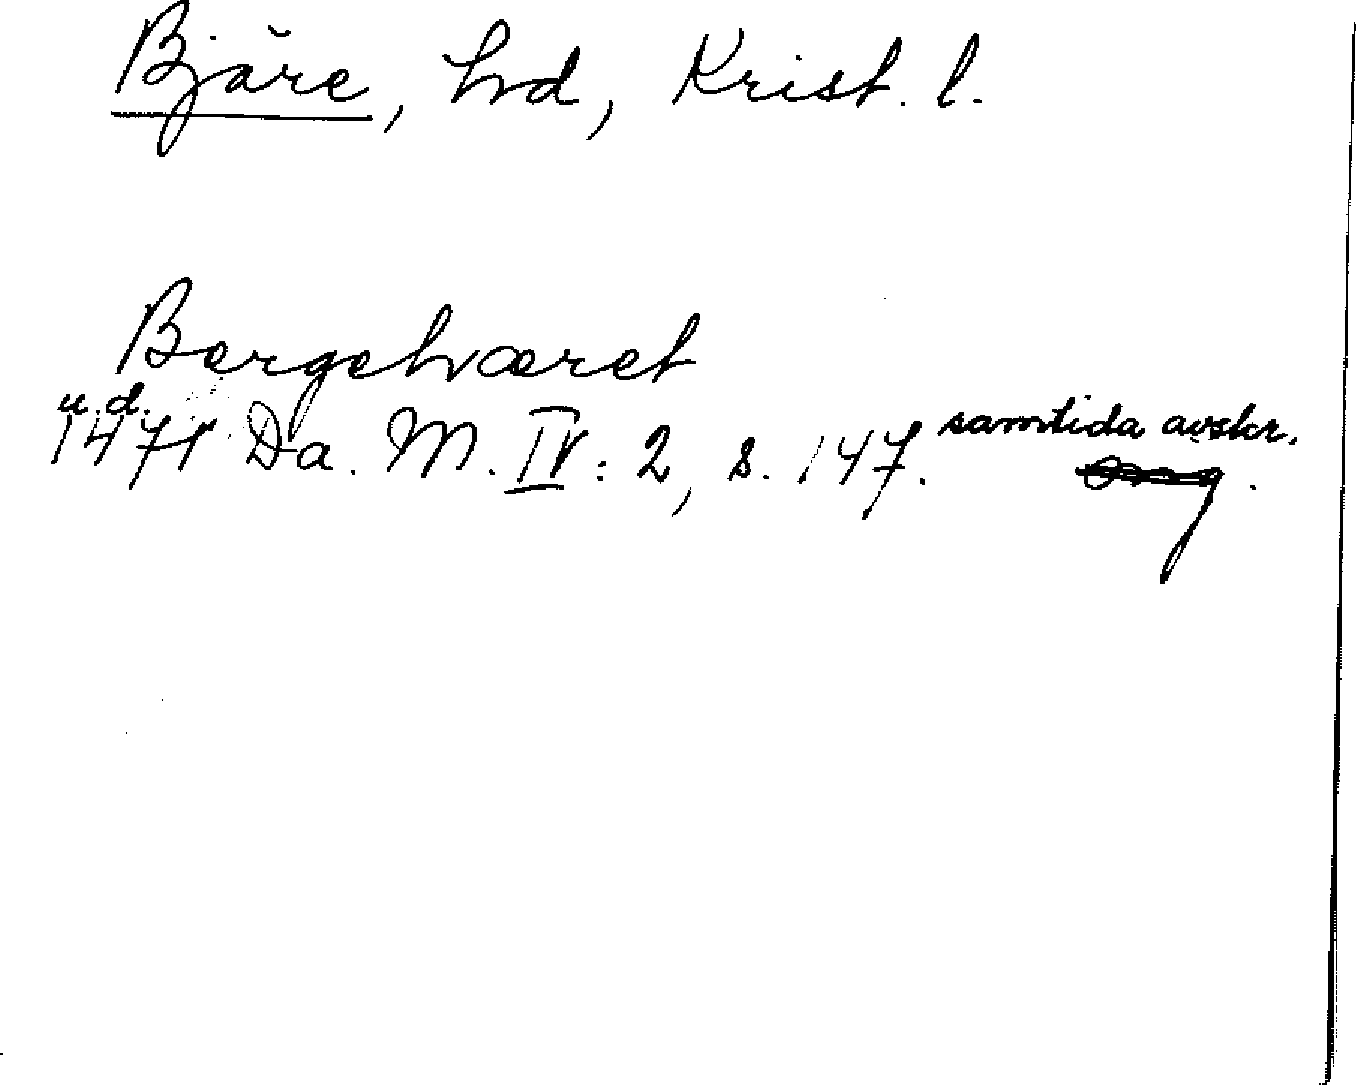 Bjäre, hd, Krist. l.
Bergehæret
u. d.
1471 Da. M. IV: 2, s. 147. samtida avskr.